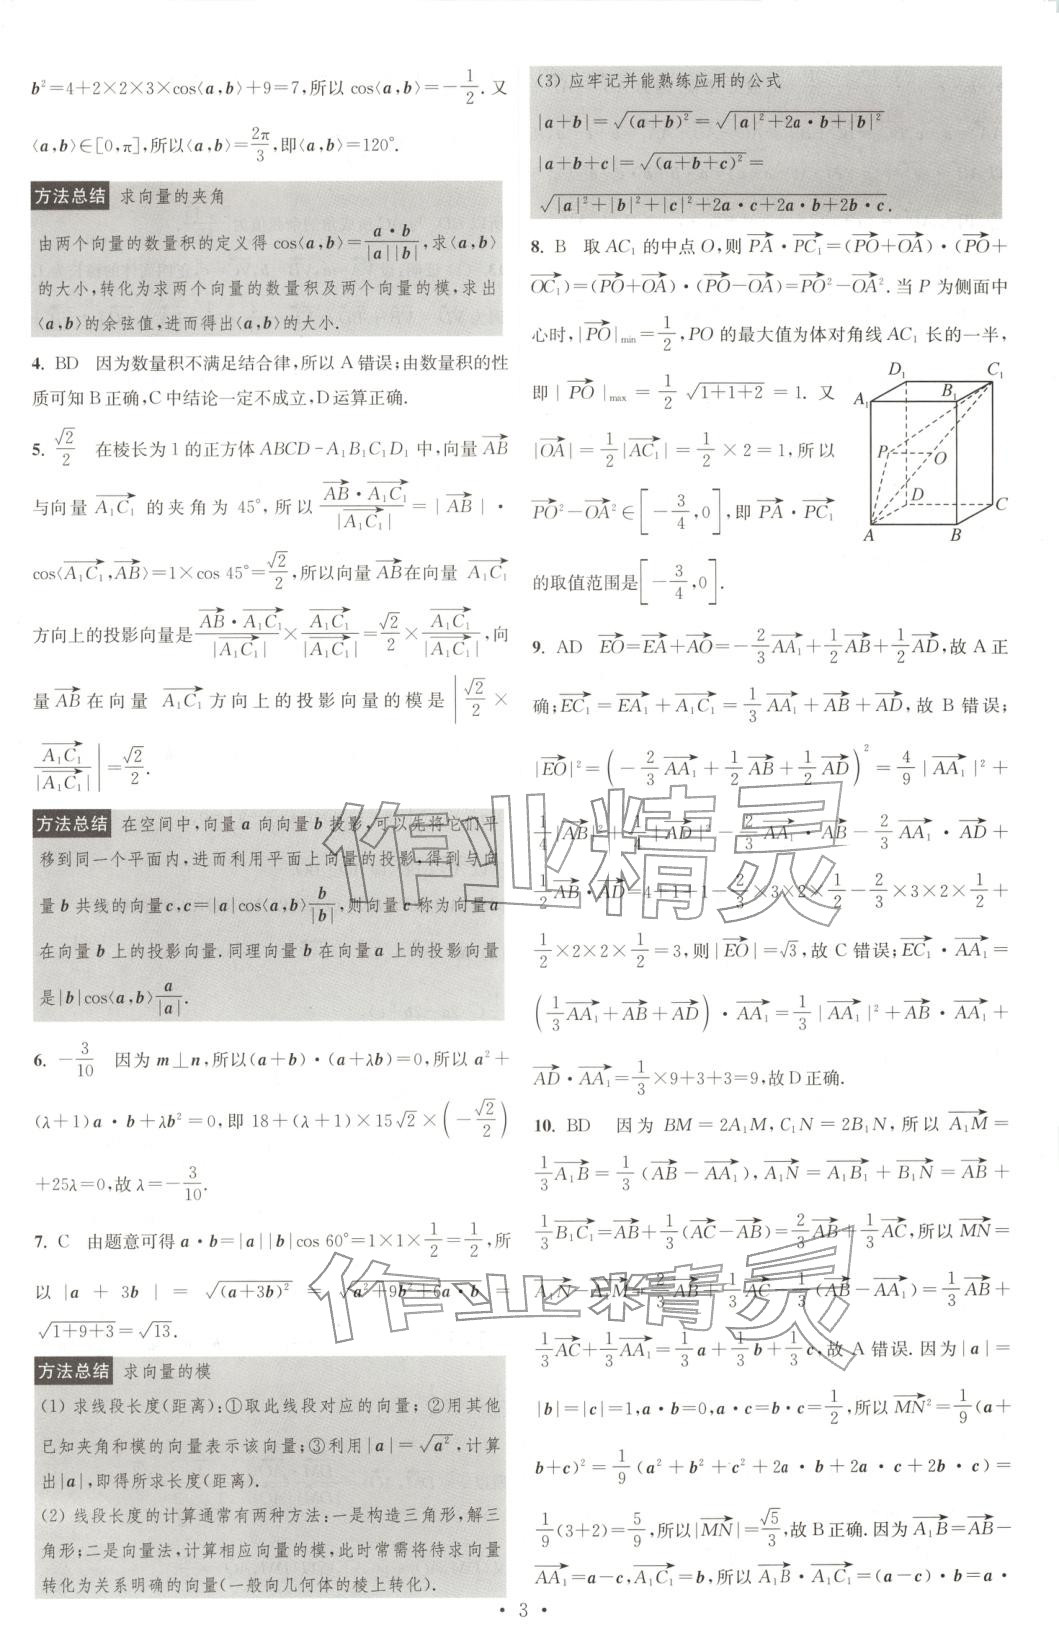 b²=4+2×2×3×cos⟨a,b⟩+9=7,所以 cos⟨a,b⟩=-1/2. 又
⟨a,b⟩∈[0,π],所以⟨a,b⟩=2π/3,即⟨a,b⟩=120°.
方法总结 求向量的夹角
由两个向量的数量积的定义得 cos⟨a,b⟩=a·b/(|a||b|),求⟨a,b⟩
的大小,转化为求两个向量的数量积及两个向量的模,求出
⟨a,b⟩的余弦值,进而得出⟨a,b⟩的大小.
4. BD 因为数量积不满足结合律,所以 A 错误;由数量积的性
质可知 B 正确,C 中结论一定不成立,D 运算正确.
5. √2/2 在棱长为 1 的正方体 ABCD-A₁B₁C₁D₁ 中,向量 →AB
与向量 →A₁C₁ 的夹角为 45°,所以 (→AB·→A₁C₁)/|→A₁C₁| = |→AB| ·
cos⟨→A₁C₁,→AB⟩=1×cos 45°=√2/2,所以向量 →AB 在向量 →A₁C₁
方向上的投影向量是 (→AB·→A₁C₁)/|→A₁C₁| × →A₁C₁/|→A₁C₁| = √2/2 × →A₁C₁/|→A₁C₁|,向
量 →AB 在向量 →A₁C₁ 方向上的投影向量的模是 |√2/2 ×
→A₁C₁/|→A₁C₁|| = √2/2.
方法总结 在空间中,向量 a 向向量 b 投影,可以先将它们平
移到同一个平面内,进而利用平面上向量的投影,得到与向
量 b 共线的向量 c,c=|a|cos⟨a,b⟩b/|b|,则向量 c 称为向量 a
在向量 b 上的投影向量.同理向量 b 在向量 a 上的投影向量
是|b|cos⟨a,b⟩a/|a|.
6. -3/10 因为 m⊥n,所以(a+b)·(a+λb)=0,所以 a²+
(λ+1)a·b+λb²=0,即 18+(λ+1)×15√2×(-√2/2)
+25λ=0,故 λ=-3/10.
7. C 由题意可得 a·b=|a||b|cos 60°=1×1×1/2=1/2,所
以 |a+3b| = √((a+3b)²) = √(a²+9b²+6a·b) =
√(1+9+3)=√13.
方法总结 求向量的模
(1) 求线段长度(距离):①取此线段对应的向量;②用其他
已知夹角和模的向量表示该向量;③利用|a|=√(a²),计算
出|a|,即得所求长度(距离).
(2) 线段长度的计算通常有两种方法:一是构造三角形,解三
角形;二是向量法,计算相应向量的模,此时常需将待求向量
转化为关系明确的向量(一般向几何体的棱上转化).
(3) 应牢记并能熟练应用的公式
|a+b|=√((a+b)²)=√(|a|²+2a·b+|b|²)
|a+b+c|=√((a+b+c)²)=
√(|a|²+|b|²+|c|²+2a·c+2a·b+2b·c).
8. B 取 AC₁ 的中点 O,则 →PA·→PC₁=(→PO+→OA)·(→PO+
→OC₁)=(→PO+→OA)·(→PO-→OA)=→PO²-→OA². 当 P 为侧面中
心时,|→PO|min=1/2,PO 的最大值为体对角线 AC₁ 长的一半,
即 |→PO|max = 1/2 √(1+1+2) = 1. 又
|→OA|=1/2|→AC₁|=1/2×2=1,所以
→PO²-→OA²∈[-3/4,0],即 →PA·→PC₁
的取值范围是[-3/4,0].
D₁ C₁
A₁ B₁
P O
D C
A B
9. AD →EO=→EA+→AO=-2/3→AA₁+1/2→AB+1/2→AD,故 A 正
确;→EC₁=→EA₁+→A₁C₁=1/3→AA₁+→AB+→AD,故 B 错误;
|→EO|²=(-2/3→AA₁+1/2→AB+1/2→AD)²=4/9|→AA₁|²+
1/4|→AB|²+1/4|→AD|²-2/3→AA₁·→AB-2/3→AA₁·→AD+
1/2→AB·→AD=4+1+1-2/3×3×2×1/2-2/3×3×2×1/2+
1/2×2×2×1/2=3,则|→EO|=√3,故 C 错误;→EC₁·→AA₁=
(1/3→AA₁+→AB+→AD)·→AA₁=1/3|→AA₁|²+→AB·→AA₁+
→AD·→AA₁=1/3×9+3+3=9,故 D 正确.
10. BD 因为 BM=2A₁M,C₁N=2B₁N,所以 →A₁M=
1/3→A₁B=1/3(→AB-→AA₁),→A₁N=→A₁B₁+→B₁N=→AB+
1/3→B₁C₁=→AB+1/3(→AC-→AB)=2/3→AB+1/3→AC,所以 →MN=
→A₁N-→A₁M=2/3→AB+1/3→AC-1/3(→AB-→AA₁)=1/3→AB+
1/3→AC+1/3→AA₁=1/3a+1/3b+1/3c,故 A 错误.因为|a|=
|b|=|c|=1,a·b=0,a·c=b·c=1/2,所以 →MN²=1/9(a+
b+c)²=1/9(a²+b²+c²+2a·b+2a·c+2b·c)=
1/9(3+2)=5/9,所以|→MN|=√5/3,故 B 正确.因为 →A₁B=→AB-
→AA₁=a-c,→A₁C₁=b,所以 →A₁B·→A₁C₁=(a-c)·b=a·
作业精灵
作业精灵
· 3 ·